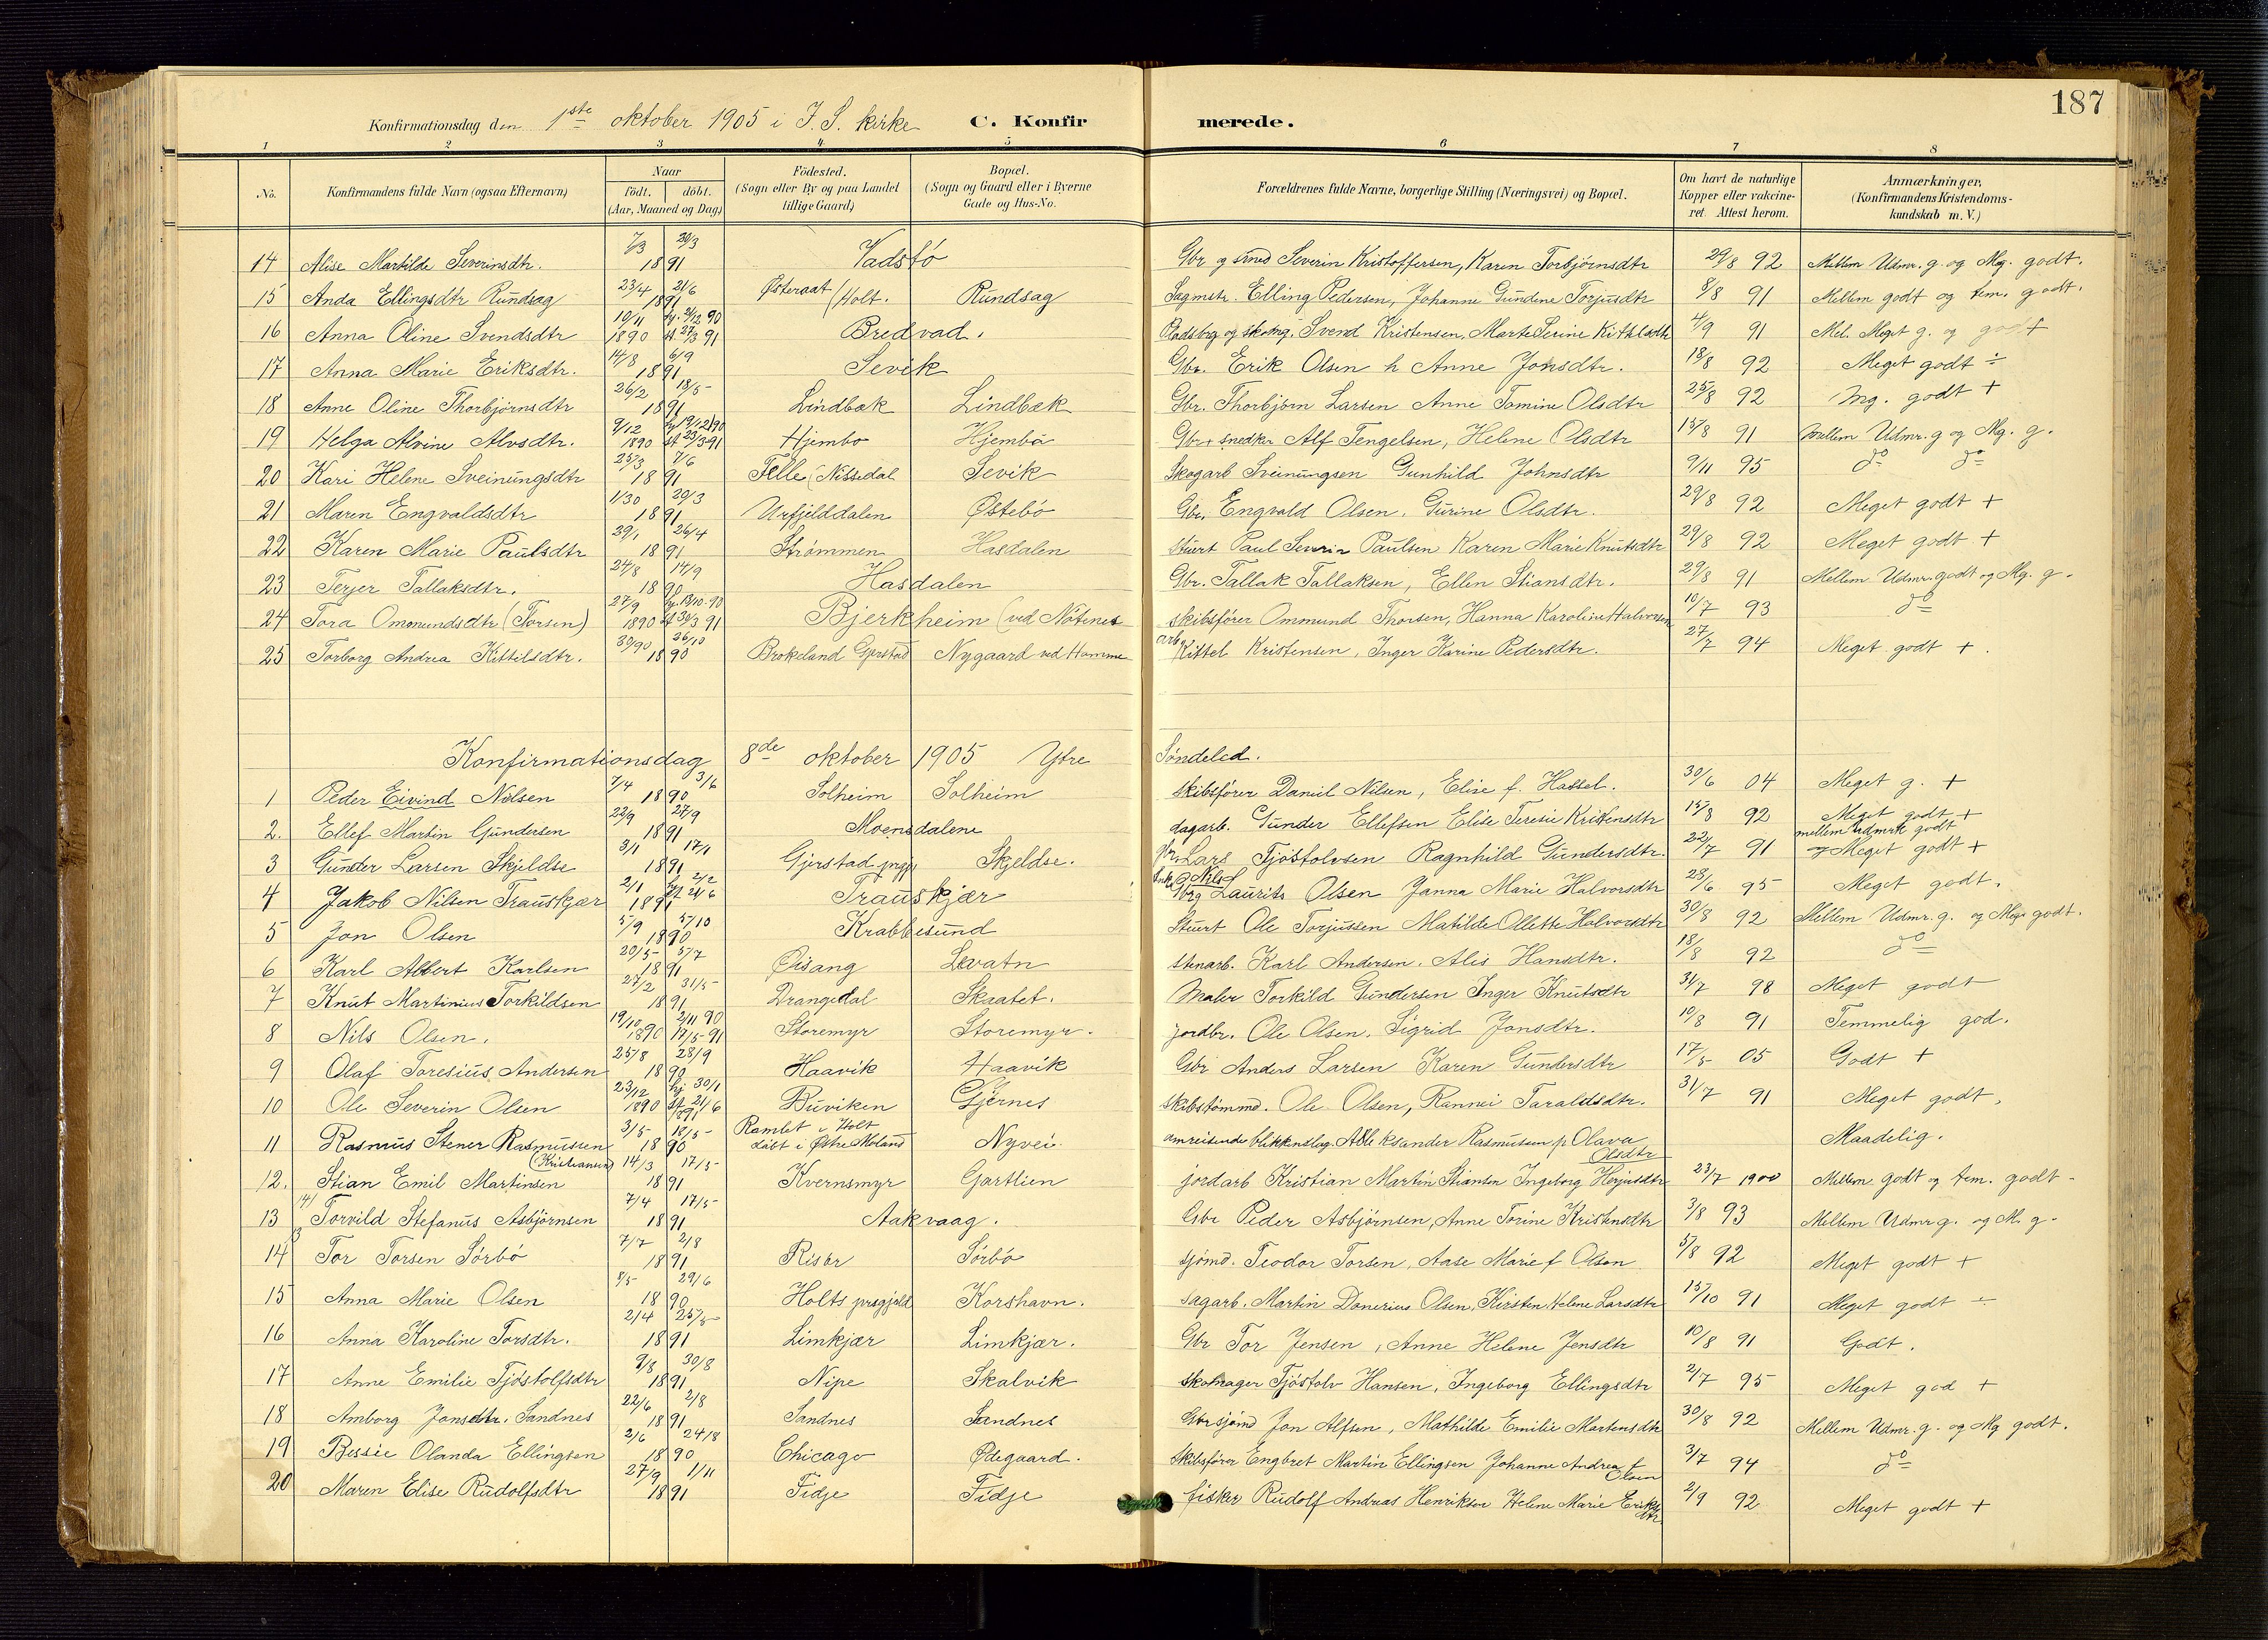 187
Konfirmationsdag den 1ste oktober 1905 i I. S. kirke C. Konfirmerede.
1 2 3 4 5 6 7 8
No. Konfirmandens fulde Navn (ogsaa Efternavn) Naar födt. döbt. (Aar, Maaned og Dag) Födested. (Sogn eller By og paa Landet tillige Gaard) Bopæl. (Sogn og Gaard eller i Byerne Gade og Hus-No. Forældrenes fulde Navne, borgerlige Stilling (Næringsvei) og Bopæl. Om havt de naturlige Kopper eller vakcineret. Attest herom. Anmærkninger, (Konfirmandens Kristendomskundskab m. V.)
14 Alise Martilde Severinsdtr. 7/3 30/3 1891 Vadstö Gbr og smed Severin Kristoffersen, Karen Torbjörnsdtr 29/8 92 Mellem Udmr. g. og Mg. godt.
15 Anda Ellingsdtr Rundsag 23/4 21/6 1891 Østeraat (Holt. Rundsag Sagmstr. Elling Pedersen, Johanne Gundine Torjusdtr 8/8 91 Mellem godt og tem. godt.
16 Anna Oline Svendsdtr 10/11 1890 hj. 21/12 90 st 27/3 91 Bredvad. Pladsbrg og skomg. Svend Kristensen, Marte Serine Kittilsdtr 4/9 91 Mel. Meget g. og godt
17 Anna Marie Eriksdtr. 14/8 6/9 1891 Sevik Gbr. Erik Olsen h Anne Jonsdtr. 18/8 92 Meget godt ÷
18 Anne Oline Thorbjörnsdtr 26/2 18/5 1891 Lindbæk Lindbæk Gbr. Thorbjörn Larsen Anne Tomine Olsdtr 25/8 92 Mg. godt +
19 Helga Alvine Alvsdtr. 9/12 1890 hj 19/12 90 st 23/3 91 Hjembo Hjembö Gbr + snedker Alf Tengelsen, Helene Olsdtr 15/8 91 Mellem Udmr. g og Mg. g.
20 Kari Helene Sveinungsdtr 25/3 7/6 1891 Felle (Nissedal Sevik Skogarb Sveinungsen Gunhild Johnsdtr 9/11 95 do do
21 Maren Engvaldsdtr 1/30 29/3 1891 Urfjelddalen Østebö Gbr. Engvald Olsen. Gurine Olsdtr. 29/8 92 Meget godt +
22 Karen Marie Paulsdtr 29/1 26/4 1891 Strömmen Hasdalen stuert Paul Severin Paulsen Karen Marie Knutsdtr 29/8 92 Meget godt +
23 Terjer Tallaksdtr. 24/8 14/9 1890 Hasdalen Gbr. Tallak Tallaksen, Ellen Stiansdtr. 29/8 91 Mellem Udmr. godt og Mg. g.
24 Tora Ommundsdtr (Torsen) 27/9 1890 hj. 13/10 90 st 30/3 91 Bjerkheim (ved Nötenes skibsförer Ommund Thorsen, Hanna Karoline Halvorsen 10/7 93 do
25 Torborg Andrea Kittilsdtr. 26/10 1890 Brokeland Gjerstad Nygaard ved Hamme arb. Kittel Kristensen, Inger Karine Pedersdtr. 27/7 94 Meget godt +.
Konfirmationsdag 8de oktober 1905 Ytre Söndeled.
1 Peder Eivind Nilsen 7/4 3/6 1890 Solheim Solheim skibsförer Daniel Nilsen, Elise f. Hassel. 30/6 04 Meget g. +
2. Ellef Martin Gundersen 22/9 27/9 1891 Moensdalene dagarb. Gunder Ellefsen Elise Teresie Kristensdtr 15/8 92 Meget godt +
3 Gunder Larsen Skjeldse 3/1 17/1 1891 Gjerstad prgj Skjeldse. Gbr. Lars Tjöstolvsen Ragnhild Gundersdtr. 22/7 91 mellem Udmrk godt og Meget godt +
4 Jakob Nilsen Trauskjær 2/1 1891 hj 2/2 st 21/6 Trauskjær Gbrg Nils Laurits Olsen Janna Marie Halvorsdtr 28/6 95 Meget godt.
5 Jon Olsen 5/9 5/10 1890 Krabbesund Stuert Ole Torjussen Matilde Ollette Halvorsdtr 30/8 92 Mellem Udmr. g. og Meget godt.
6 Karl Albert Karlsen 20/5 5/7 1891 Øisang Levatn stenarb. Karl Andersen. Alis Hansdtr. 18/8 92 do
7 Knut Martinius Torkildsen 27/2 31/5 1891 Drangedal Skaatet. Maler Torkild Gundersen Inger Knutsdtr 31/7 98 Meget godt
8 Nils Olsen. 19/10 1890 2/11 90 17/5 91 Storemyr Storemyr. jordbr. Ole Olsen. Sigrid Jonsdtr. 10/8 91 Temmelig god.
9 Olaf Toresius Andersen 25/8 28/9 1890 Haavik Haavik Gbr Anders Larsen Karen Gundersdtr 17/5 05 Godt +
10 Ole Severin Olsen 23/12 1890 hj 30/1 st. 21/6 1891 Buviken Gjernes skibstömmd. Ole Olsen, Rannei Taraldsdtr. 31/7 91 Meget godt,
11 Rasmus Stener Rasmussen 3/5 18/5 1890 Ramlet i Holt döbt i Østre Moland Nyvei. omreisende blikkenslag. Aleksander Rasmussen p Olava Olsdtr Maadelig.
12. Stian Emil Martinsen (Kristiansen) 14/3 17/5 1891 Kvernsmyr Gartlien jordarb Kristian Martin Stiansen Ingeborg Herjusdtr 23/7 1900 Mellem godt og tem. godt
13 Torvild Stefanus Asbjörnsen 7/4 17/5 1891 Aakvaag. Gbr Peder Asbjörnsen, Anne Torine Kristensdtr 3/8 93 Mellem Udmr g. og M. g.
14 Tor Torsen Sörbö 7/7 2/8 1891 Risör Sörbö sjömd. Teodor Torsen, Aase Marie f Olsen 5/8 92 Meget godt +
15 Anna Marie Olsen 8/5 29/6 1890 Holts prsgjeld Korshavn. sagarb. Martin Donerius Olsen, Kirsten Helene Larsdtr 15/10 91 Meget godt ÷
16 Anna Karoline Torsdtr. 2/4 25/5 1891 Limkjær Limkjær. Gbr Tor Jensen, Anne Helene Jensdtr 10/8 91 Godt.
17 Anne Emilie Tjöstolfsdtr 9/8 30/8 1891 Nipe Skalvik skomager Tjöstolv Hansen, Ingeborg Ellingsdtr 2/7 95 Meget god +
18 Amborg Jonsdtr. Sandnes 22/6 2/8 1891 Sandnes Sandnes Gbr sjömd Jon Alfsen, Mathilde Emilie Martensdtr 30/8 92 Mellem Udmr. g. og Mg godt.
19 Bessie Olanda Ellingsen 2/6 24/8 1890 Chicago Ødegaard. Skibsförer Engbret Martin Ellingsen Johanne Andrea f Olsen 3/7 94 do
20 Maren Elise Rudolfsdtr 27/9 1/11 1891 Fidje Fidje fisker Rudolf Andreas Henriksen Helene Marie Eriksdtr 2/9 92 Meget godt +